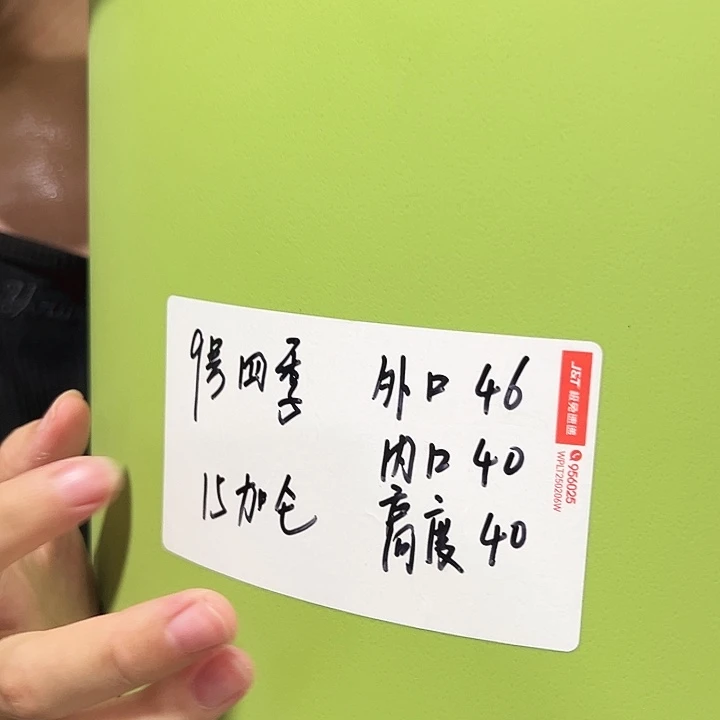 9号四季
15加仑
外口 46
内口 40
高度 40
J&T 極兔速遞
956025
WPLT250206W